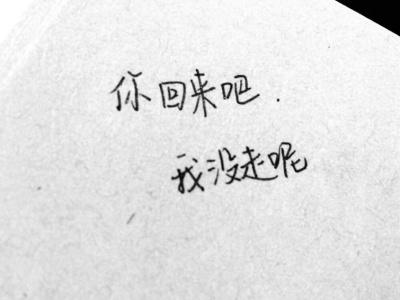 你回来吧.
我没走呢